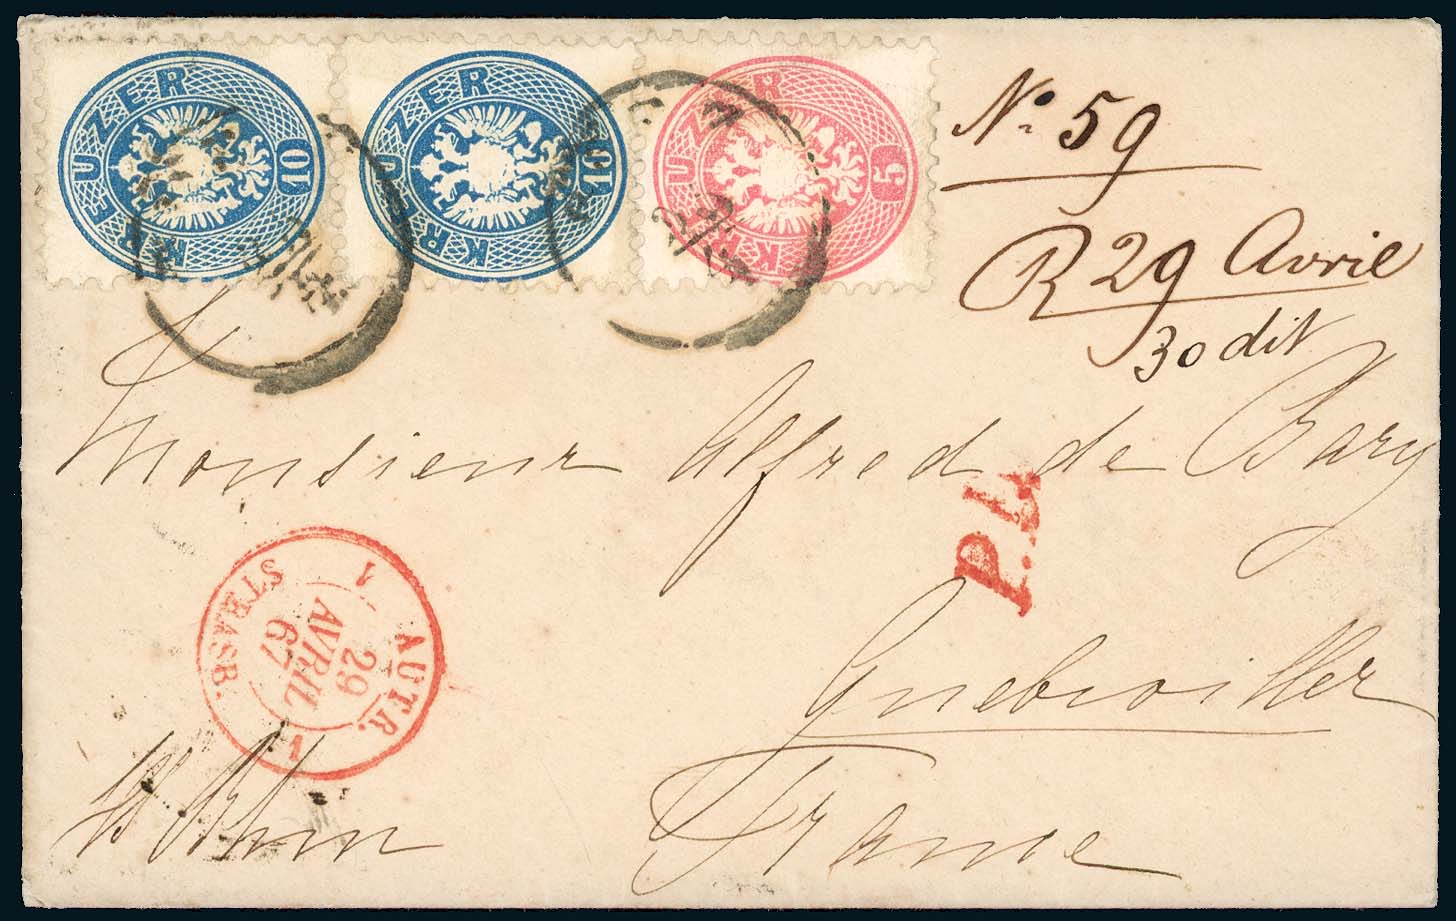 10 KREUZER
10 KREUZER
5 KREUZER
No. 59
R 29 Avril
30 dit
Monsieur Alfred de Bary
P.D.
AUTR. 1
29
AVRIL
67
STRASB. 1
Guebwiller
France